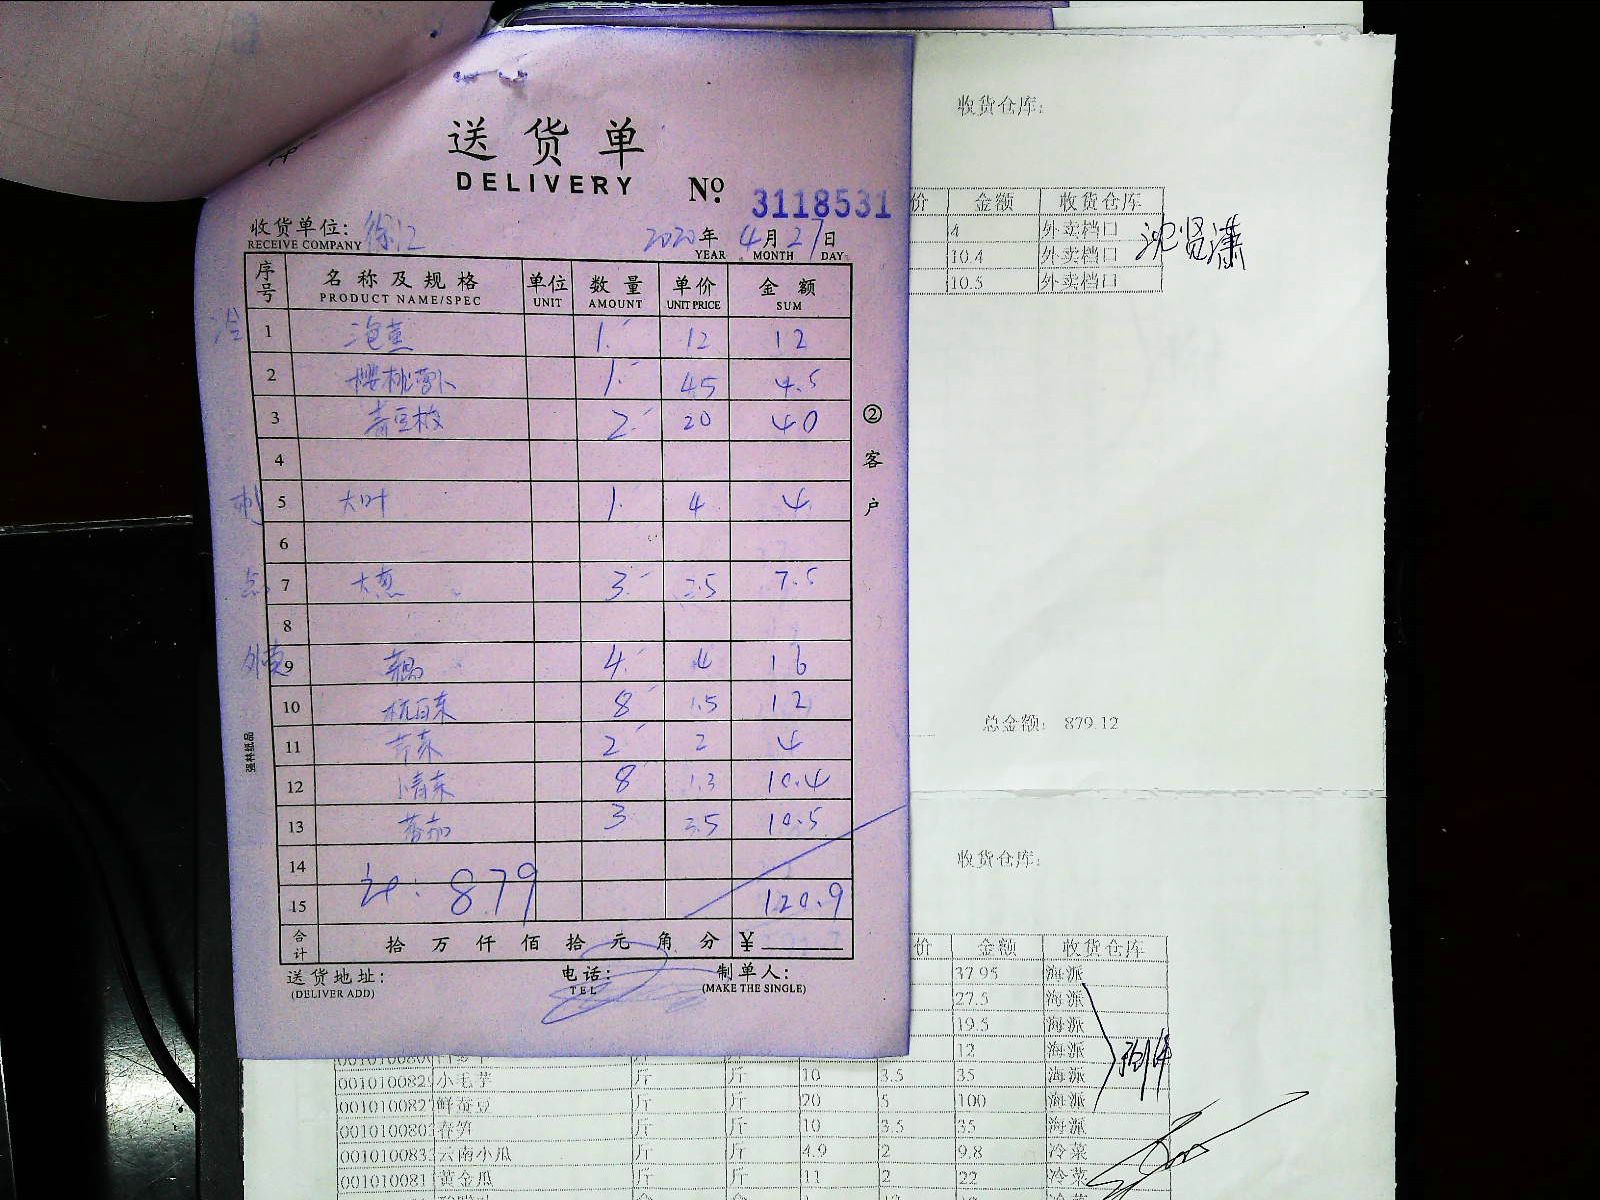 送货单
DELIVERY
№ 3118531
收货单位: 徐汇
RECEIVE COMPANY
2020年 4月 27日
YEAR MONTH DAY
序号 名称及规格 单位 数量 单价 金额
PRODUCT NAME/SPEC UNIT AMOUNT UNIT PRICE SUM
冷 1 1 12 12
2 樱桃萝卜 1 45 4.5
3 青豆板 2 20 40
4
刺 5 大叶 1 4 4
6
点 7 大葱 3 2.5 7.5
8
外卖 9 4 4 16
10 杭白菜 8 1.5 12
11 芹菜 2 2 4
12 小青菜 8 1.3 10.4
13 番茄 3 3.5 10.5
14
计: 879
15 120.9
合计 拾 万 仟 佰 拾 元 角 分 ¥
送货地址: 电话: 制单人:
(DELIVER ADD) TEL (MAKE THE SINGLE)
②客户
强林纸品
收货仓库:
价 金额 收货仓库
4 外卖档口
10.4 外卖档口
10.5 外卖档口
沈贤潇
总金额: 879.12
收货仓库:
价 金额 收货仓库
37.95 海派
27.5 海派
19.5 海派
12 海派
小毛芋 斤 斤 10 3.5 35 海派
鲜蚕豆 斤 斤 20 5 100 海派
春笋 斤 斤 10 3.5 35 海派
云南小瓜 斤 斤 4.9 2 9.8 冷菜
黄金瓜 斤 斤 11 2 22 冷菜